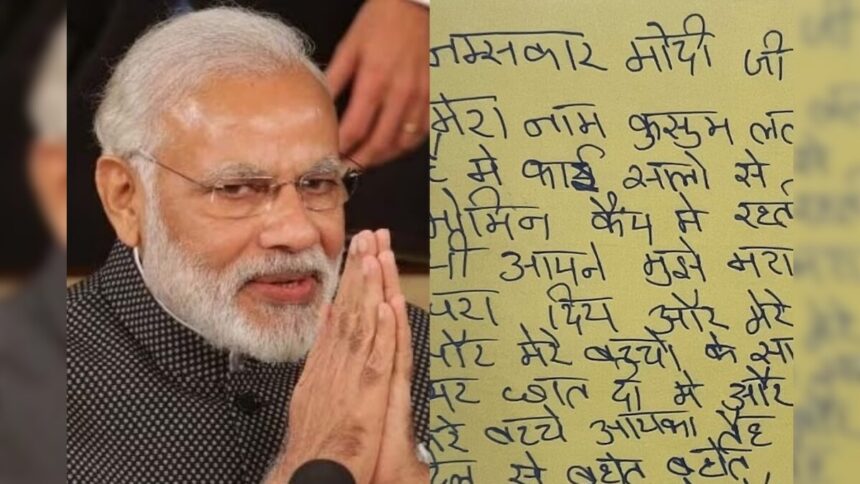 नम्सकार मोदी जी
मेरा नाम कुसुम
मे काई सालो से
कैंप मे
आपने मुझे मेरा
दिय और मेरे
और मेरे बच्चो के
छात दा मे और
बच्चे आपका
से बहोत बहोत